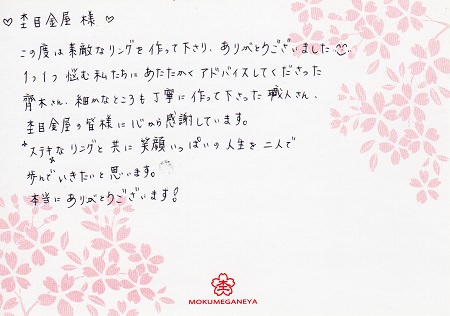 ♡ 杢目金屋 様 ♡
この度は素敵なリングを作って下さり、ありがとうございました
1つ1つ悩む私たちにあたたかくアドバイスしてくださった
齊木さん、細かなところも丁寧に作って下さった職人さん、
杢目金屋の皆様に心から感謝しています。
ステキなリングと共に笑顔いっぱいの人生を二人で
歩んでいきたいと思います。
本当にありがとうございます!
杢
MOKUMEGANEYA